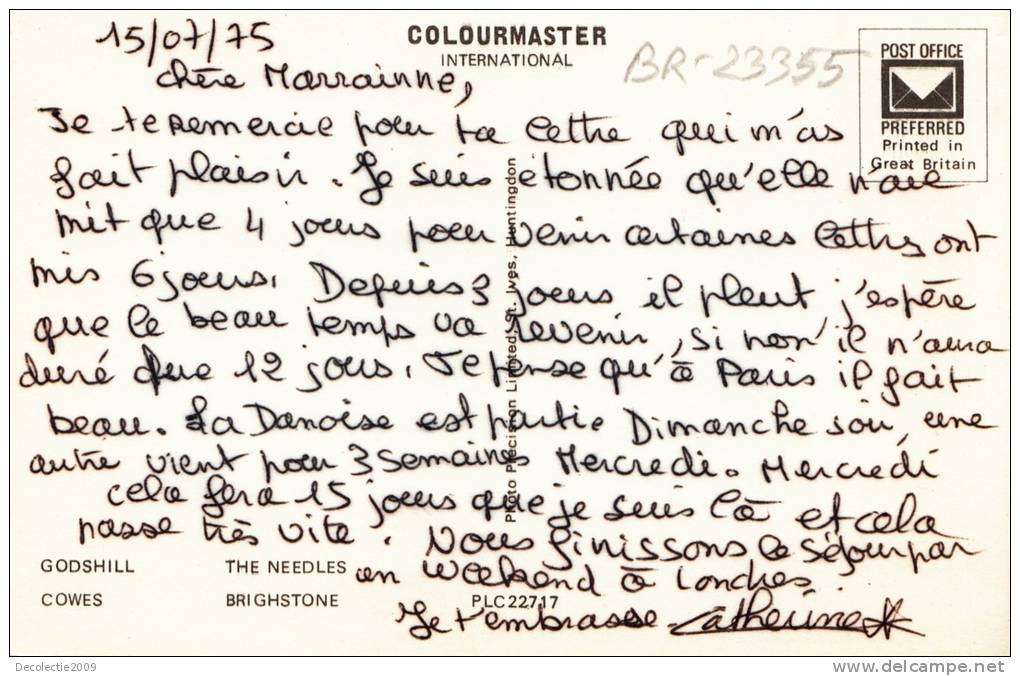 15/07/75
COLOURMASTER
INTERNATIONAL
BR-23355
POST OFFICE
PREFERRED
Printed in
Great Britain
chère Marrainne,
Je te remercie pour ta lettre qui m'as
fait plaisir. Je suis etonnée qu'elle n'aie
mit que 4 jours pour venir certaines lettres ont
mis 6 jours. Depuis 3 jours il pleut j'espère
que le beau temps va revenir, si non il n'aura
duré que 12 jours. Je pense qu'à Paris il fait
beau. La Danoise est partie Dimanche soir, une
autre vient pour 3 semaines Mercredi. Mercredi
cela fera 15 jours que je suis là et cela
passe très vite. Nous finissons le séjour par
un weekend à Londres.
Je t'embrasse. Catherine
Photo Precision Limited, St. Ives, Huntingdon
GODSHILL THE NEEDLES
COWES BRIGHSTONE PLC22717
Decolectie2009
www.delcampe.net